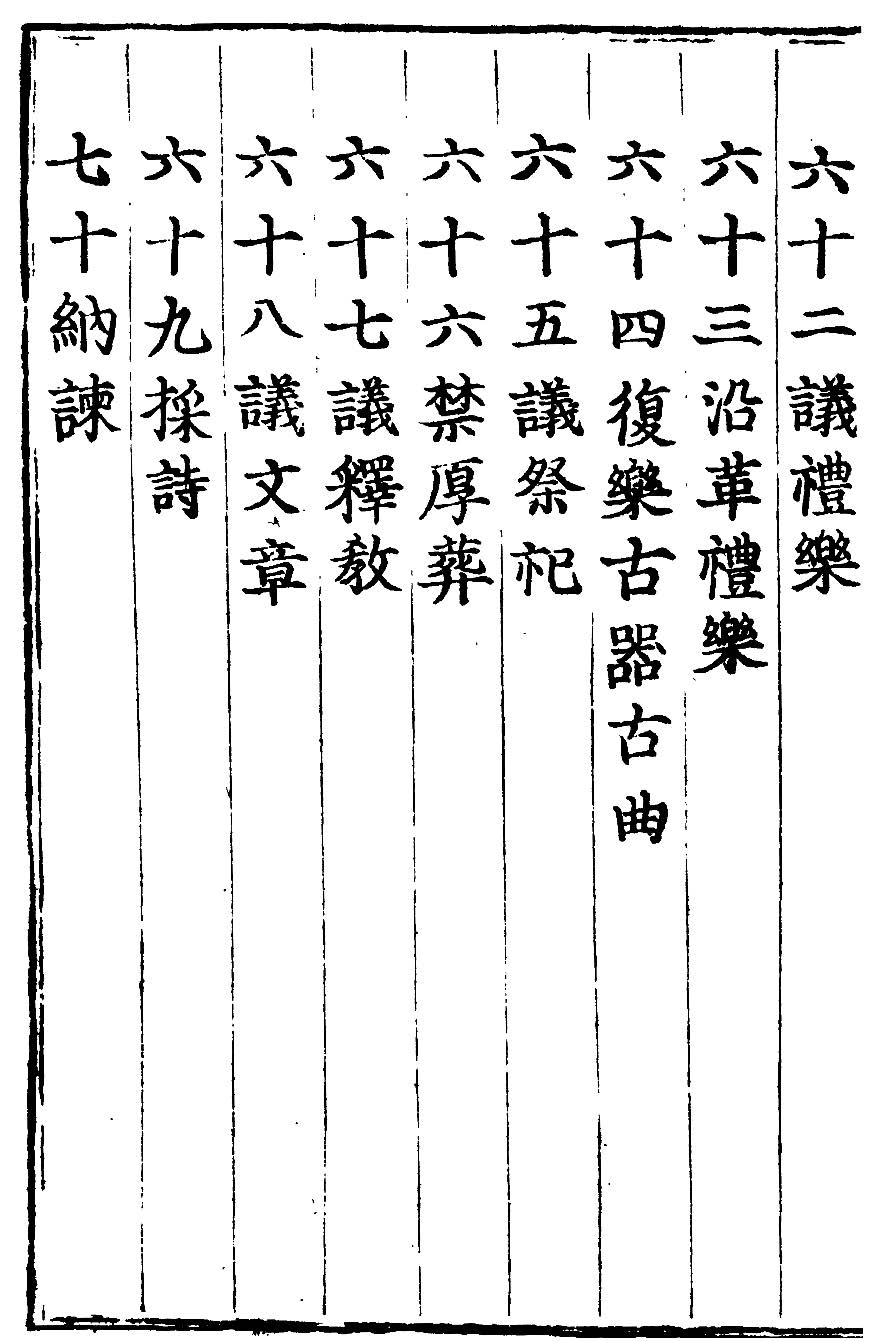 六十二議禮樂
六十三沿革禮樂
六十四復樂古器古曲
六十五議祭祀
六十六禁厚葬
六十七議釋教
六十八議文章
六十九採詩
七十納諫